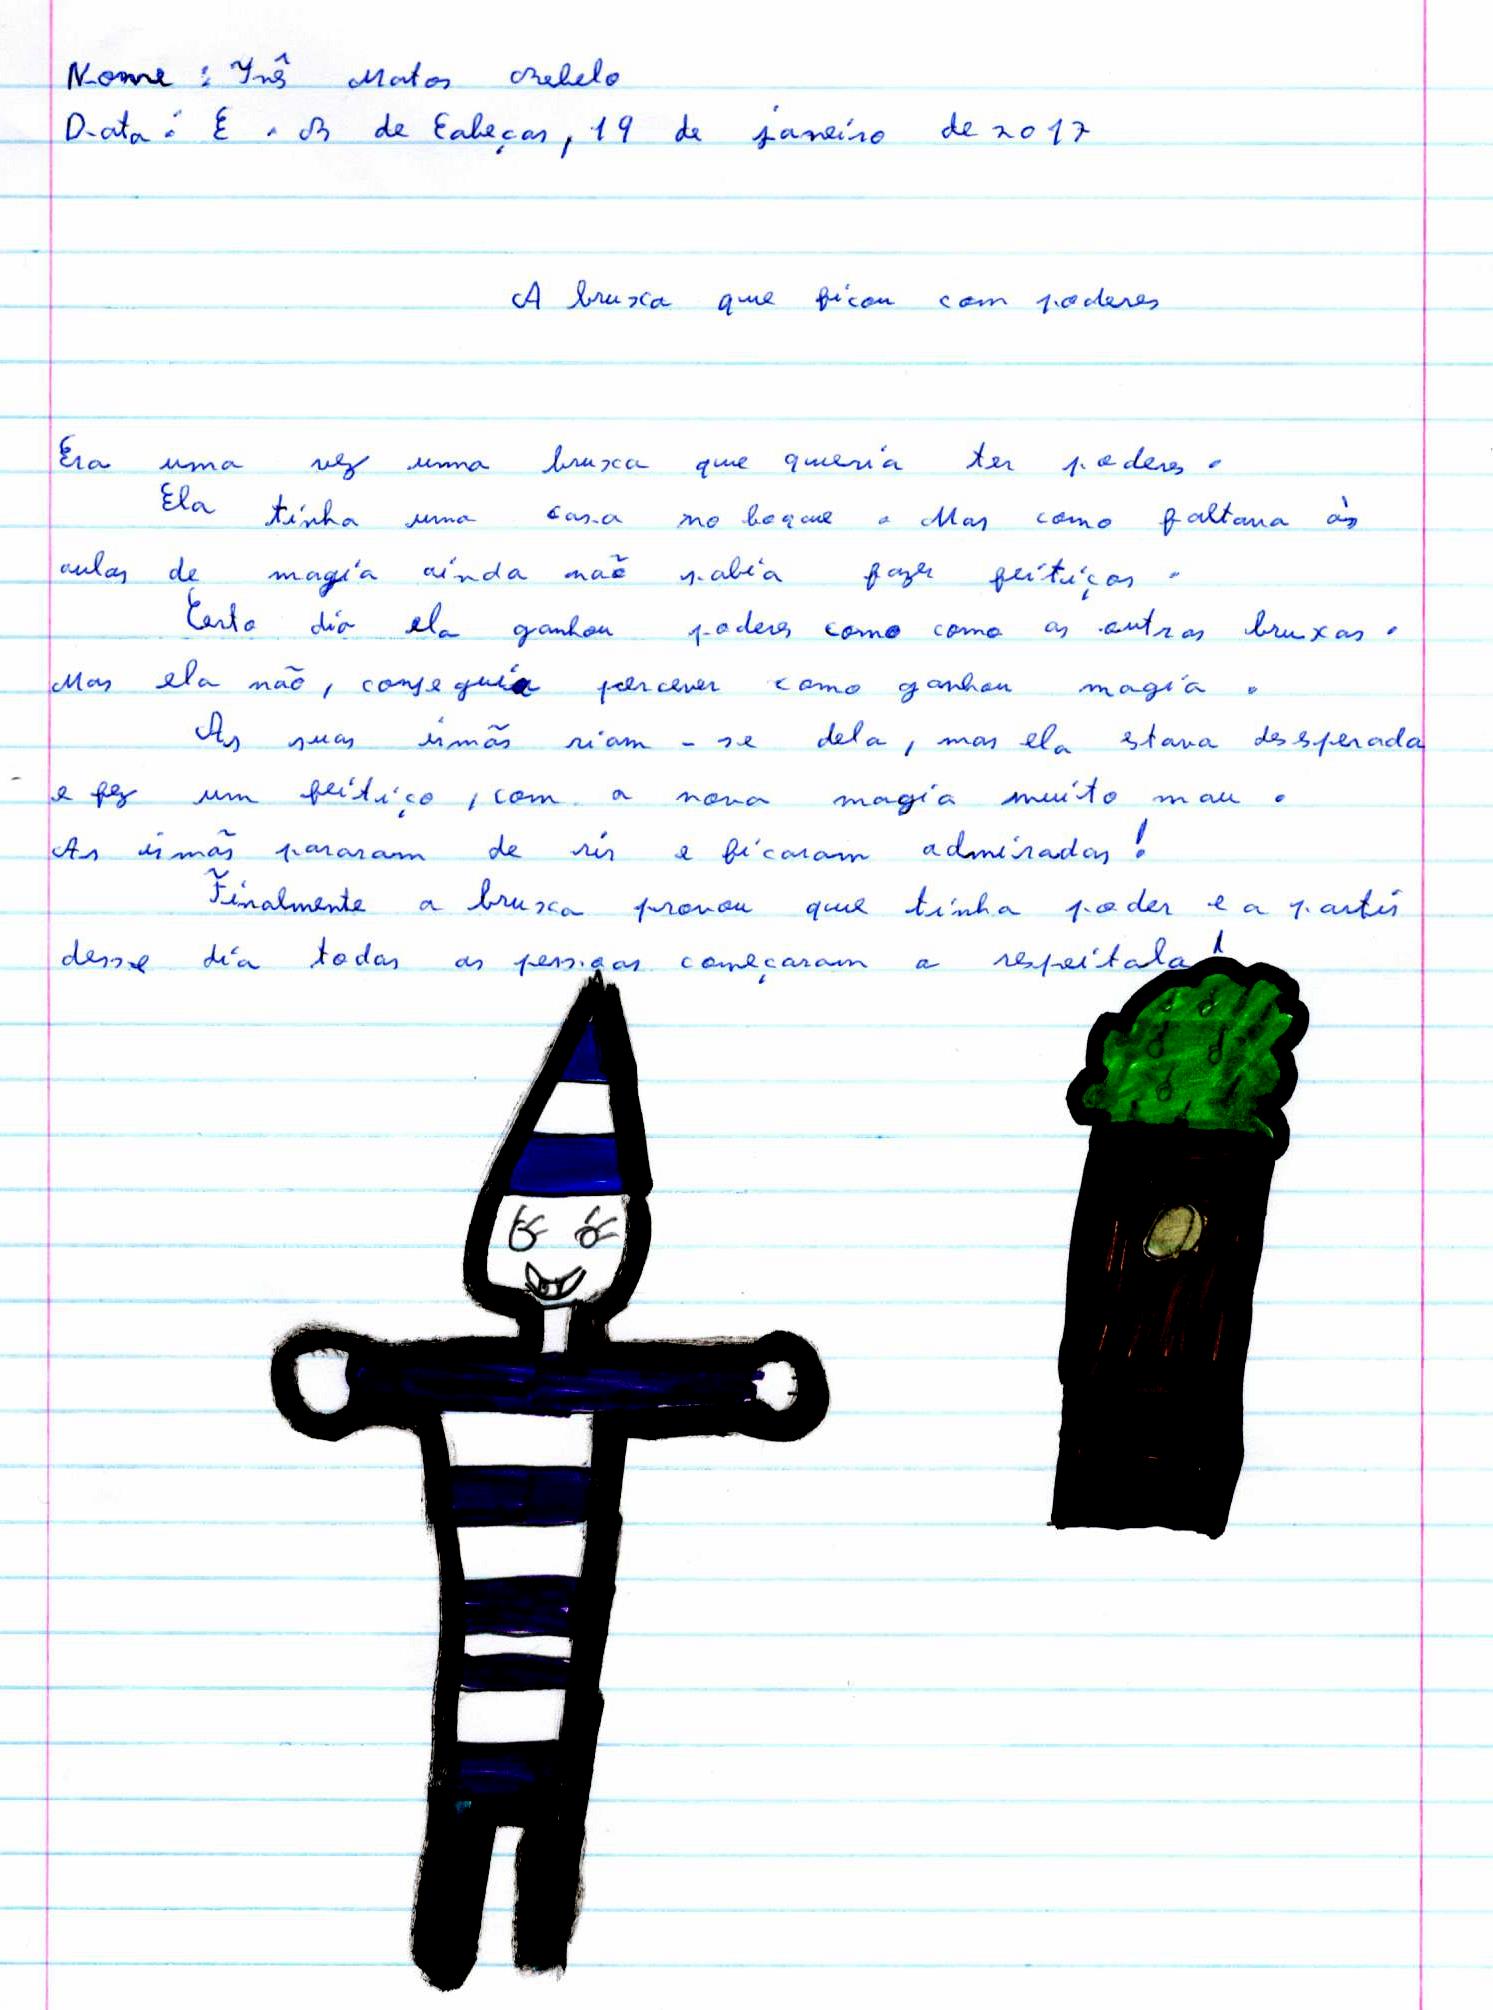 Nome : Inês Matos Rebelo
Data : E . B de Cabeças, 19 de janeiro de 2017
A bruxa que ficou com poderes
Era uma vez uma bruxa que queria ter poderes .
Ela tinha uma casa no boque . Mas como faltava às
aulas de magia ainda não sabia fazer feitiços .
Certo dia ela ganhou poderes como como as outras bruxas .
Mas ela não, conseguia percever como ganhou magia .
As suas irmãs riam - se dela, mas ela estava desesperada
e fez um feitiço , com a nova magia muito mau .
As irmãs pararam de rir e ficaram admiradas !
Finalmente a bruxa provou que tinha poder e a partir
desse dia todas as pessoas começaram a respeitala !